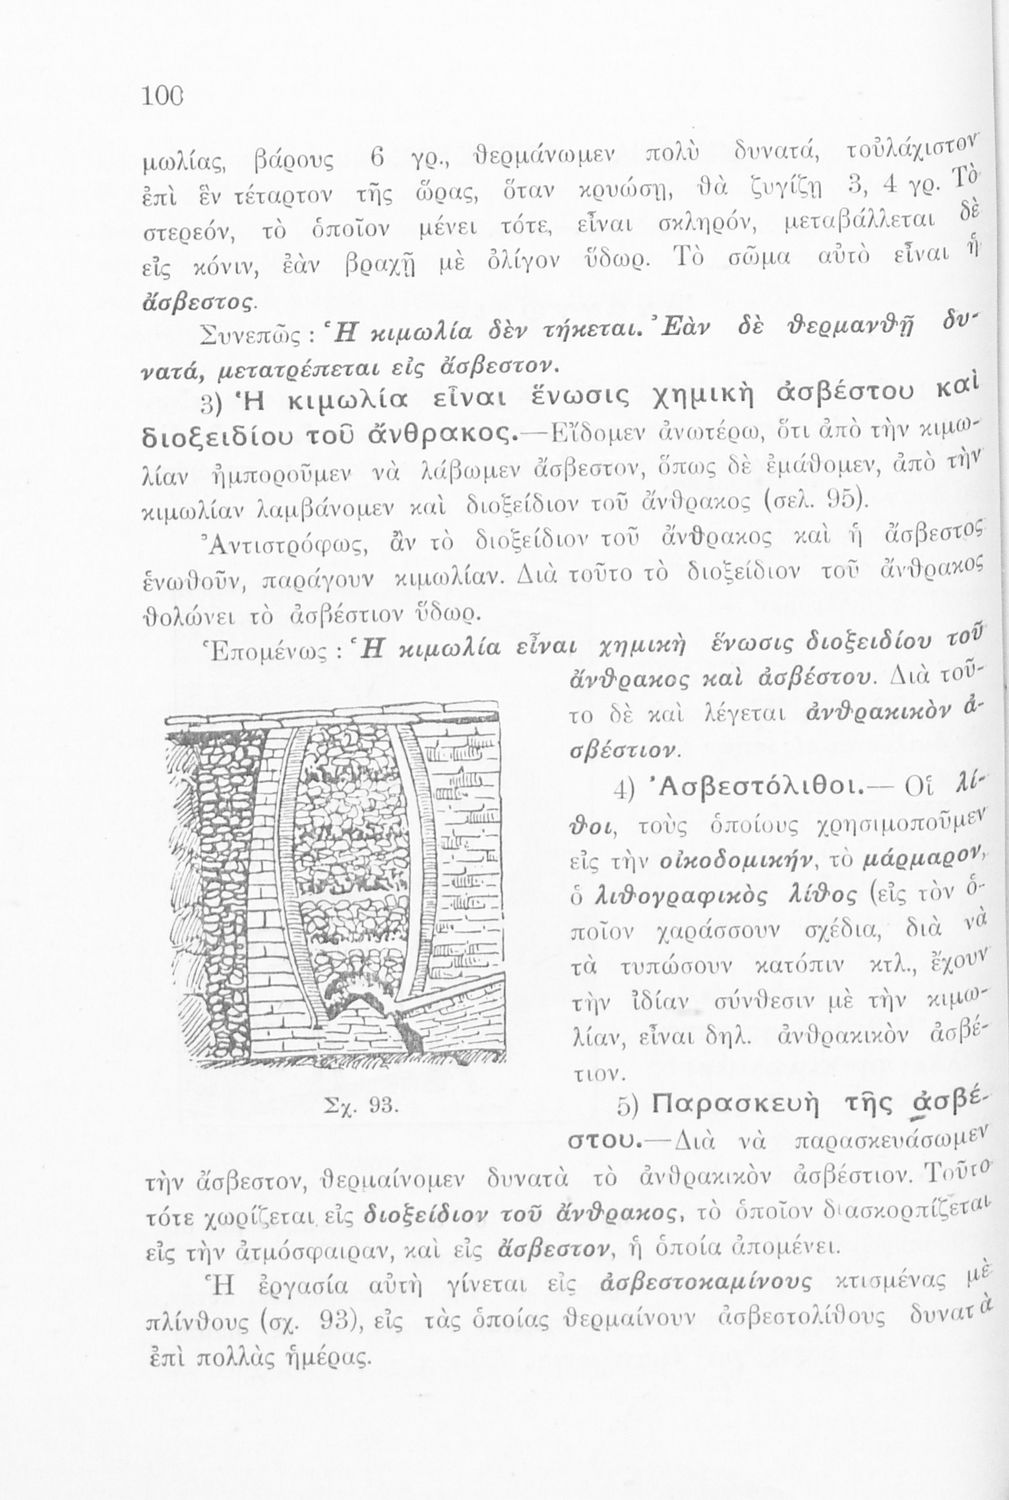 100
μωλίας, βάρους 6 γρ., θερμάνωμεν πολὺ δυνατά, τοὐλάχιστον
ἐπὶ ἓν τέταρτον τῆς ὥρας, ὅταν κρυώσῃ, θὰ ζυγίζῃ 3, 4 γρ. Τὸ
στερεόν, τὸ ὁποῖον μένει τότε, εἶναι σκληρόν, μεταβάλλεται δὲ
εἰς κόνιν, ἐὰν βραχῇ μὲ ὀλίγον ὕδωρ. Τὸ σῶμα αὐτὸ εἶναι ἡ
ἄσβεστος.
Συνεπῶς : Ἡ κιμωλία δὲν τήκεται. Ἐὰν δὲ θερμανθῇ δυ-
νατά, μετατρέπεται εἰς ἄσβεστον.
3) Ἡ κιμωλία εἶναι ἕνωσις χημικὴ ἀσβέστου καὶ
διοξειδίου τοῦ ἄνθρακος.—Εἴδομεν ἀνωτέρω, ὅτι ἀπὸ τὴν κιμω-
λίαν ἠμποροῦμεν νὰ λάβωμεν ἄσβεστον, ὅπως δὲ ἐμάθομεν, ἀπὸ τὴν
κιμωλίαν λαμβάνομεν καὶ διοξείδιον τοῦ ἄνθρακος (σελ. 95).
Ἀντιστρόφως, ἂν τὸ διοξείδιον τοῦ ἄνθρακος καὶ ἡ ἄσβεστος
ἑνωθοῦν, παράγουν κιμωλίαν. Διὰ τοῦτο τὸ διοξείδιον τοῦ ἄνθρακος
θολώνει τὸ ἀσβέστιον ὕδωρ.
Ἑπομένως : Ἡ κιμωλία εἶναι χημικὴ ἕνωσις διοξειδίου τοῦ
ἄνθρακος καὶ ἀσβέστου. Διὰ τοῦ-
το δὲ καὶ λέγεται ἀνθρακικὸν ἀ-
σβέστιον.
4) Ἀσβεστόλιθοι.— Οἱ λί-
θοι, τοὺς ὁποίους χρησιμοποῦμεν
εἰς τὴν οἰκοδομικήν, τὸ μάρμαρον,
ὁ λιθογραφικὸς λίθος (εἰς τὸν ὁ-
ποῖον χαράσσουν σχέδια, διὰ νὰ
τὰ τυπώσουν κατόπιν κτλ., ἔχουν
τὴν ἰδίαν σύνθεσιν μὲ τὴν κιμω-
λίαν, εἶναι δηλ. ἀνθρακικὸν ἀσβέ-
τιον.
Σχ. 93.
5) Παρασκευὴ τῆς ἀσβέ-
στου.—Διὰ νὰ παρασκευάσωμεν
τὴν ἄσβεστον, θερμαίνομεν δυνατὰ τὸ ἀνθρακικὸν ἀσβέστιον. Τοῦτο
τότε χωρίζεται εἰς διοξείδιον τοῦ ἄνθρακος, τὸ ὁποῖον διασκορπίζεται
εἰς τὴν ἀτμόσφαιραν, καὶ εἰς ἄσβεστον, ἡ ὁποία ἀπομένει.
Ἡ ἐργασία αὐτὴ γίνεται εἰς ἀσβεστοκαμίνους κτισμένας μὲ
πλίνθους (σχ. 93), εἰς τὰς ὁποίας θερμαίνουν ἀσβεστολίθους δυνατὰ
ἐπὶ πολλὰς ἡμέρας.